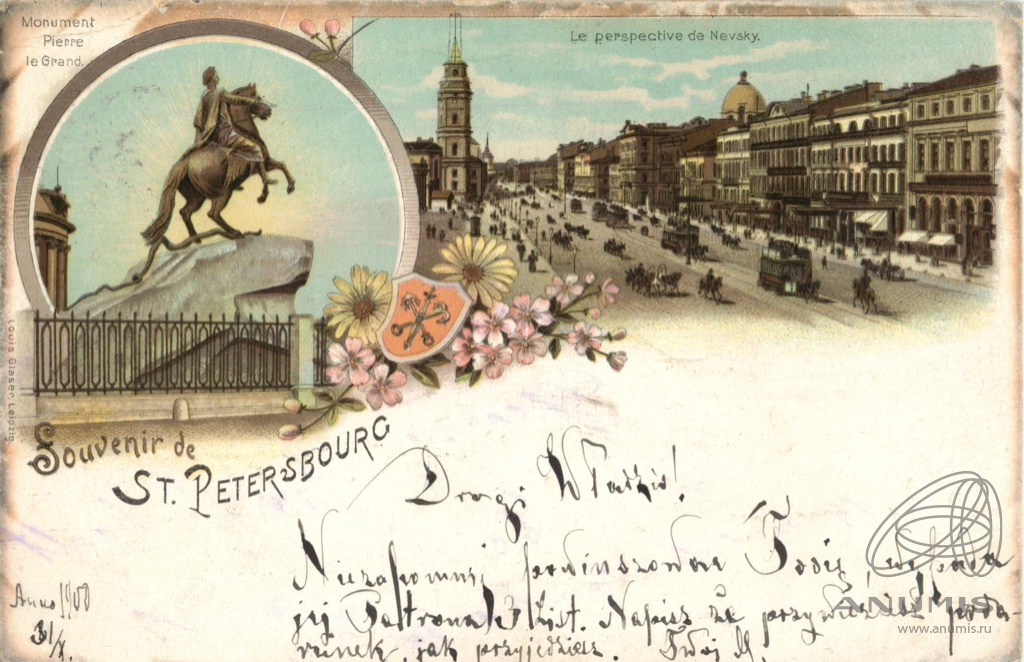 Monument
Pierre
le Grand.
Le perspective de Nevsky.
Louis Glaser, Leipzig
Souvenir de
St. Petersbourg
Drogi Władzio!
Niezapomnij
jej Patrona 3 List. Napisz że przywieziesz poda-
runek, jak przyjedziesz. Twój M.
Anno 1900
3/X.
ANUMIS
www.anumis.ru